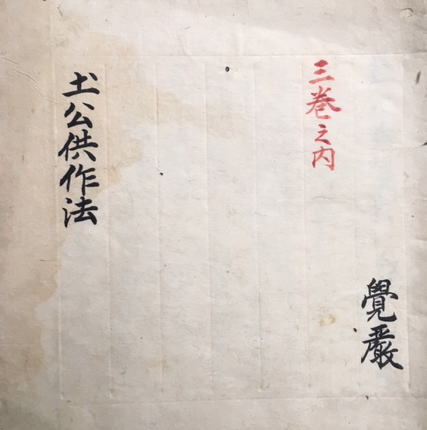 三巻之内
覺嚴
土公供作法